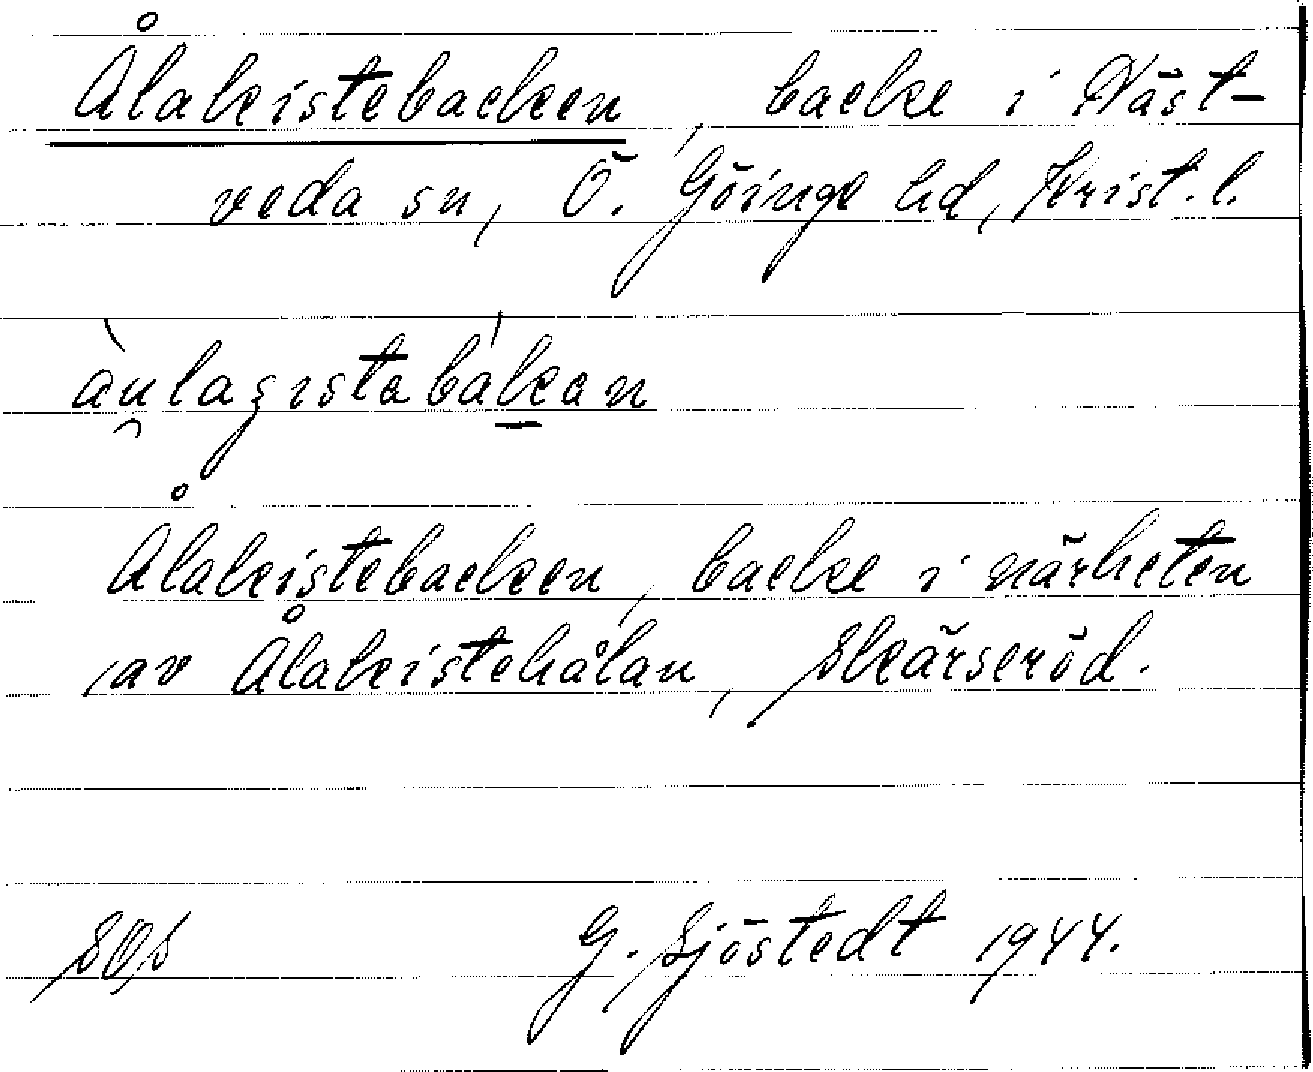 Ålakistebacken, backe i Näst-
veda sn, Ö. Göinge hd, Krist. l.
Ålakistebacken, backe i närheten
av Ålakistehålan, Skärseröd.
SOS G. Sjöstedt 1944.